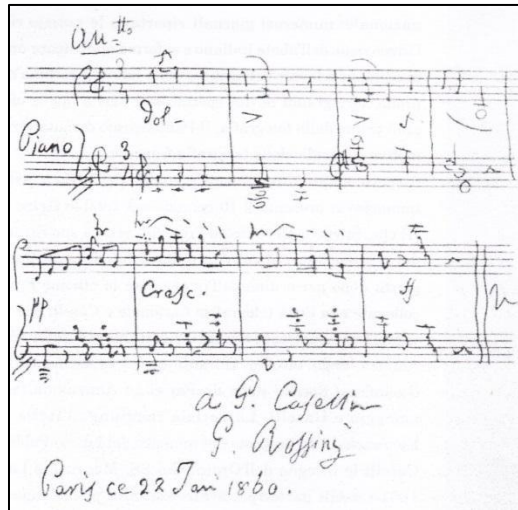 All.tto
dol-
Piano
pp Cresc. ff
a G. Casella
G. Rossini
Paris ce 22 Jan 1860.